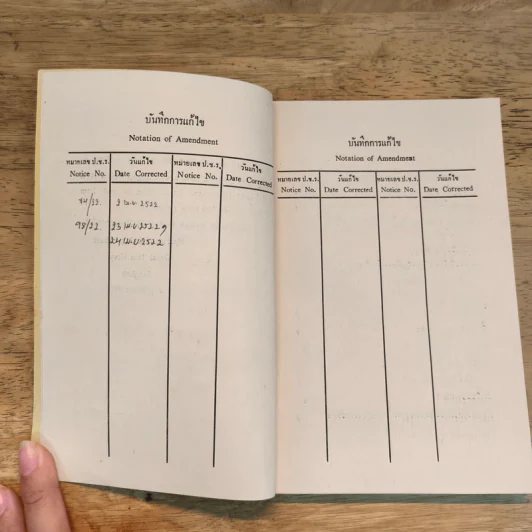 บันทึกการแก้ไข
Notation of Amendment
หมายเลข ป.ช.ร. วันแก้ไข หมายเลข ป.ช.ร. วันแก้ไข
Notice No. Date Corrected Notice No. Date Corrected
2522
2522
บันทึกการแก้ไข
Notation of Amendment
หมายเลข ป.ช.ร. วันแก้ไข หมายเลข ป.ช.ร. วันแก้ไข
Notice No. Date Corrected Notice No. Date Corrected